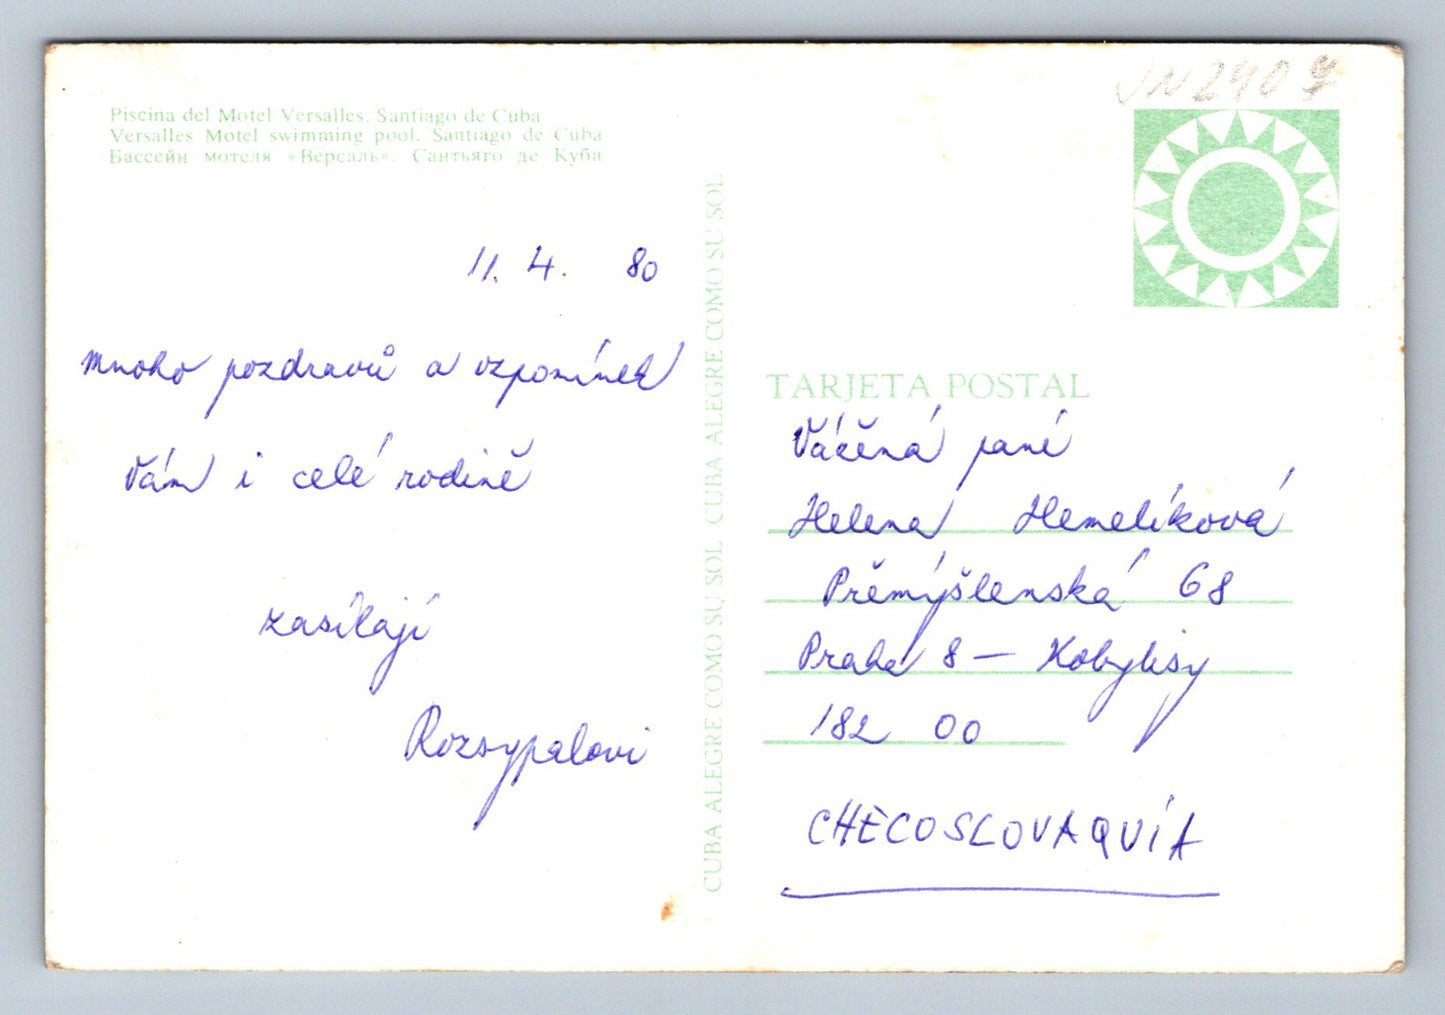 Piscina del Motel Versalles. Santiago de Cuba
Versalles Motel swimming pool. Santiago de Cuba
Бассейн мотеля «Версаль». Сантьяго де Куба
11. 4. 80
Mnoho pozdravů a vzpomínek
Vám i celé rodině
zasílají
Rozsypalovi
CUBA ALEGRE COMO SU SOL CUBA ALEGRE COMO SU SOL CUBA ALEGRE COMO SU SOL
TARJETA POSTAL
Vážená paní
Helena Hemelíková
Přemýšlenská 68
Praha 8 — Kobylisy
182 00
CHECOSLOVAQUÍA